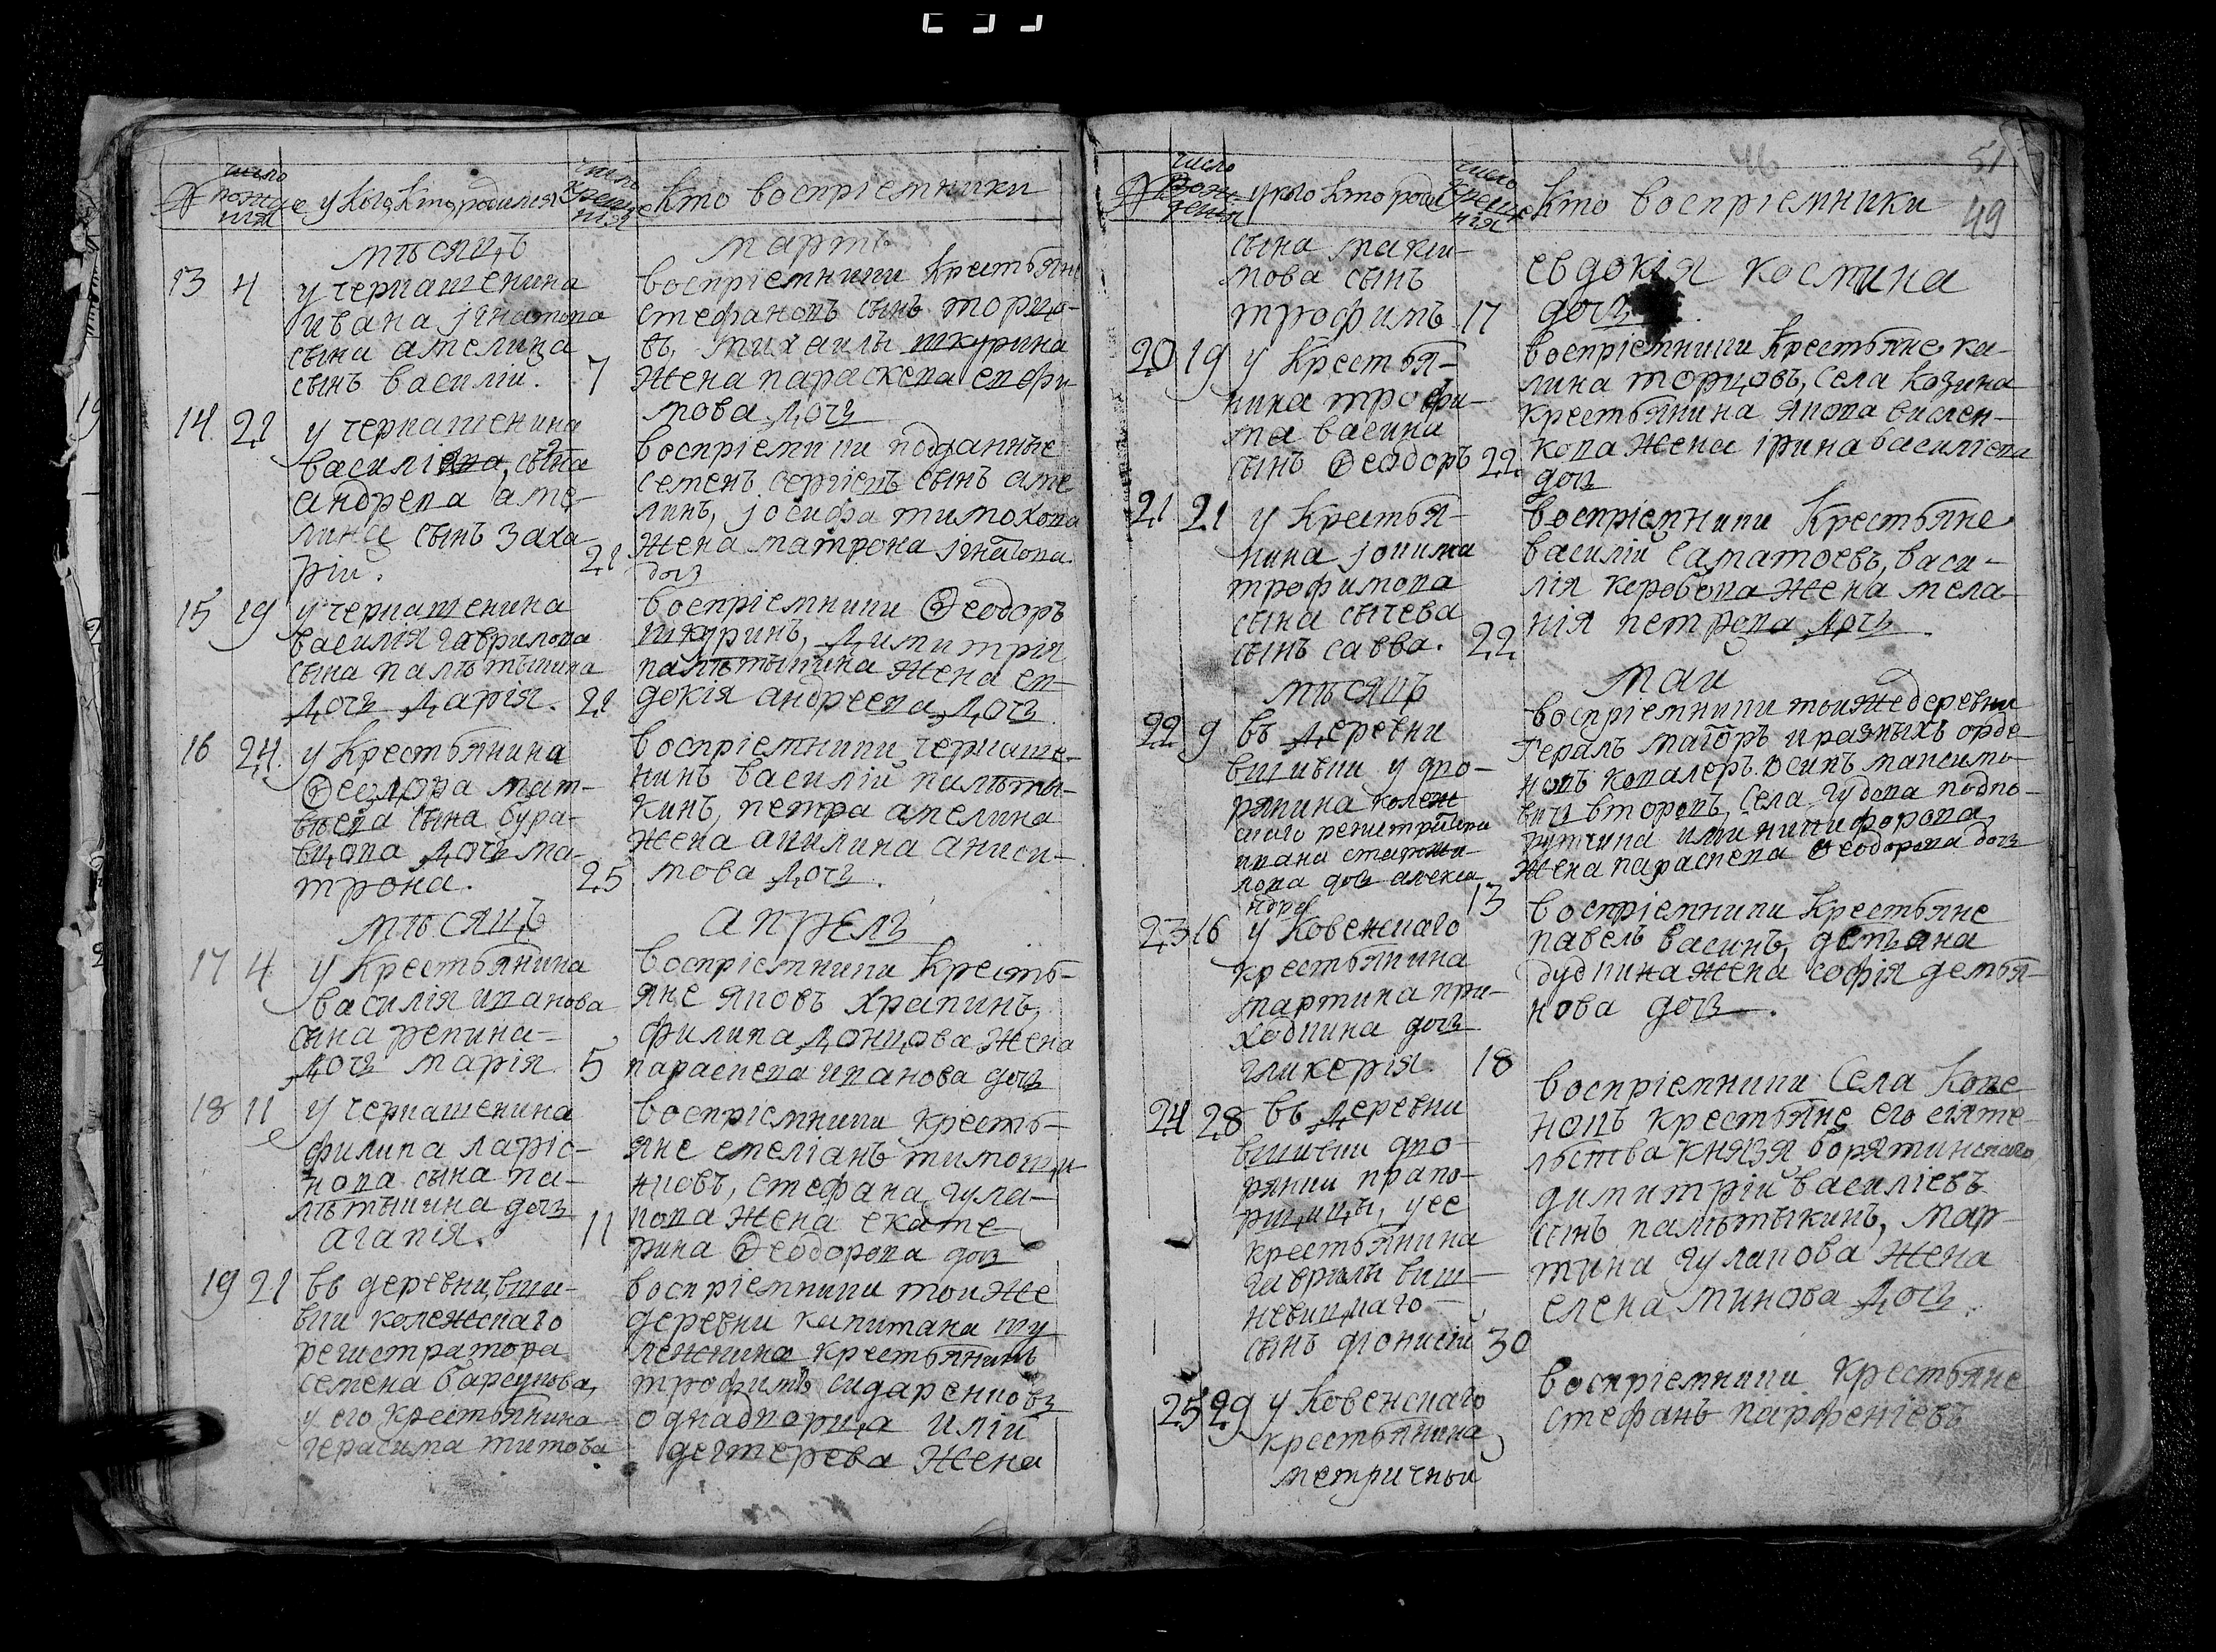 №
число рожде нія
у кого, кто родился
число креще нія
кто воспріемники
мѣсяцъ
мартъ
13 4 у черкашенина
ивана ігнатова
сына амелина
сынъ василіи. 7
воспріемники крестьяне
стефановъ сынъ торцо-
въ, михаилы шкурина
жена параскева евфи
мова дочь
14 21 у черкашенина
василіева, сына
андрева аме-
лина сынъ заха
ріи. 21
воспріемники подданные
семенъ сергіевъ сынъ аме
линъ, іосифа тимохова
жена матрона ігнатова
дочь
15 19 у черкашенина
василія гаврилова
сына палѣтыкина
дочь дарія. 21
воспріемники Ѳеодоръ
шкуринъ, димитрія
палѣтыкина жена ев-
докія андреева дочь
16 24 у крестьянина
Ѳеодора мат-
вѣева сына бура-
вцова дочь ма-
трона. 25
воспріемники черкаше-
нинъ василій палѣты-
кинъ, петра амелина
жена акилина аниси-
мова дочь.
мѣсяцъ
апрель
17 4 у крестьянина
василія иванова
сына репина-
дочь марія. 5
воспріемники кресть-
яне яковъ храпинъ,
филипа донцова жена
параскева иванова дочь
18 11 у черкашенина
филипа ларіо-
нова сына па-
лѣтыкина дочь
агапія. 11
воспріемники кресть-
яне емеліанъ тимощи
нковъ, стефана гула-
кова жена екате
рина Ѳеодорова дочь
19 21 въ деревни, виш-
вки колежскаго
регистратора
семена барсукова,
у его крестьянина
герасима титова
воспріемники тоиже
деревни капитана шу
лежкина крестьянинъ
трофимъ сидаренковъ
однадворца иліи
дегтерева жена
№
число рож- дения
у кого кто родил
число креще нія
кто воспріемники
46
51
49
сына макси-
мова сынъ
трофимъ 17
евдокія костина
дочь
20 19 у крестья-
нина трофи-
ма васина
сынъ Ѳеодоръ 22
воспріемники крестьяне ка-
лина торцовъ, села козина
крестьянина якова вислен-
кова жена ірина василіева
дочь
21 21 у крестья-
нина іокима
трофимова
сына сычева
сынъ савва. 22
воспріемники крестьяне
василій саматоевъ, васи-
лія коробова жена мела
нія петрова дочь
мѣсяцъ
маи
22 9 въ деревни
вишивки у дво-
рянина колеж
скаго регистратора
ивана
дочь алекса
ндра 13
воспріемники тоиже деревни
гералъ магоръ и разныхъ орде-
новъ ковалеръ осипъ максимо-
вичь второвъ, села гудова подпо-
никифорова
жена параскева Ѳеодорова дочь
23 16 у ковенскаго
крестьянина
мартина при-
ходкина дочь
гликерія. 18
воспріемники крестьяне
павелъ васинъ, демьяна
дудкина жена софія демья-
нова дочь.
24 28 въ деревни
вишивки дво-
рянки прапо-
рщицы, у ее
крестьянина
гаврилы виш-
невицкаго-
сынъ діонисій 30
воспріемники села копе
нокъ крестьяне его сіяте-
льства князя борятинскаго
димитрій василіевъ
сынъ палѣтыкинъ, мар-
тина гулакова жена
елена минова дочь.
25 29 у ковенскаго
крестьянина
метричной
воспріемники крестьяне
стефанъ парфеніевъ